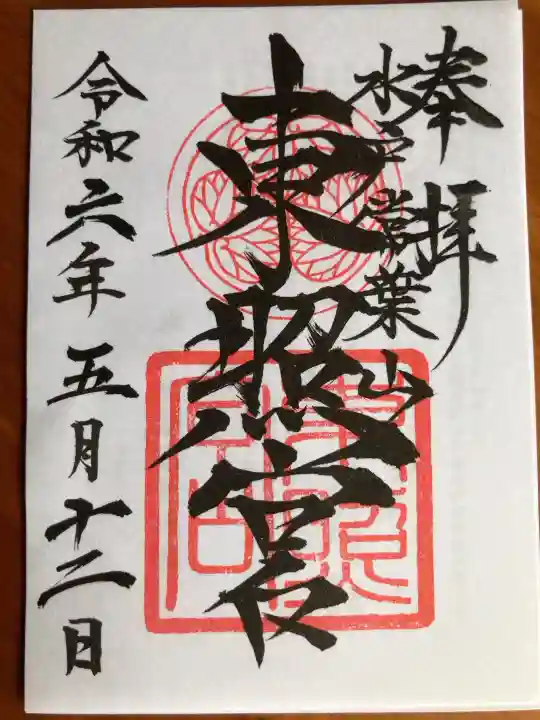 奉拝
水戸常葉山
東照宮
令和六年五月十二日